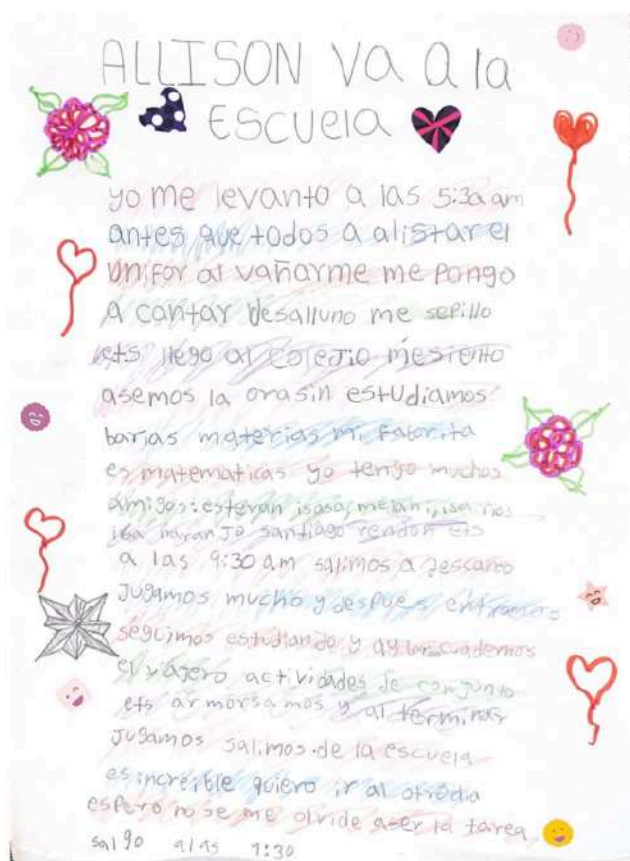 ALLISON Va a la
Escuela
yo me levanto a las 5:30 am
antes que todos a alistar el
unifor al vañarme me pongo
a cantar desalluno me sepillo
ets llego al colejio me siento
asemos la orasin estudiamos
barias materias mi faborita
es matematicas yo tengo muchos
amigos: estevan isasa, melani, isa rios
isa naranjo santiago rendon ets
a las 9:30 am salimos a descanso
Jugamos mucho y despues entramos
seguimos estudiando y ay cuadernos
el viajero actividades de conjunto
ets armorsamos y al terminar
Jugamos salimos de la escuela
es increible quiero ir al otro dia
espero no se me olvide aser la tarea
salgo alas 1:30